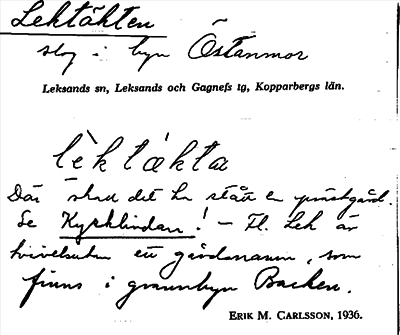 Lektäkten
slog i byn Östanmor
Leksands sn, Leksands och Gagnefs tg, Kopparbergs län.
lèktäkta
Där skall det ha stått en prästgård.
Se Kyrklindan! – Fl. Lek är
tvivelsutan ett gårdsnamn, som
finns i grannbyn Backen.
ERIK M. CARLSSON, 1936.